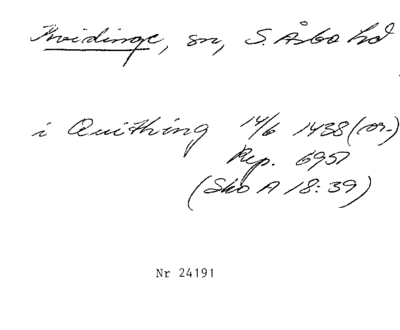 Kvidinge, sn, S. Åsbo hd
i Quithing 14/6 1438 (or.)
Rep. 6957
(SkO A 18:39)
Nr 24191